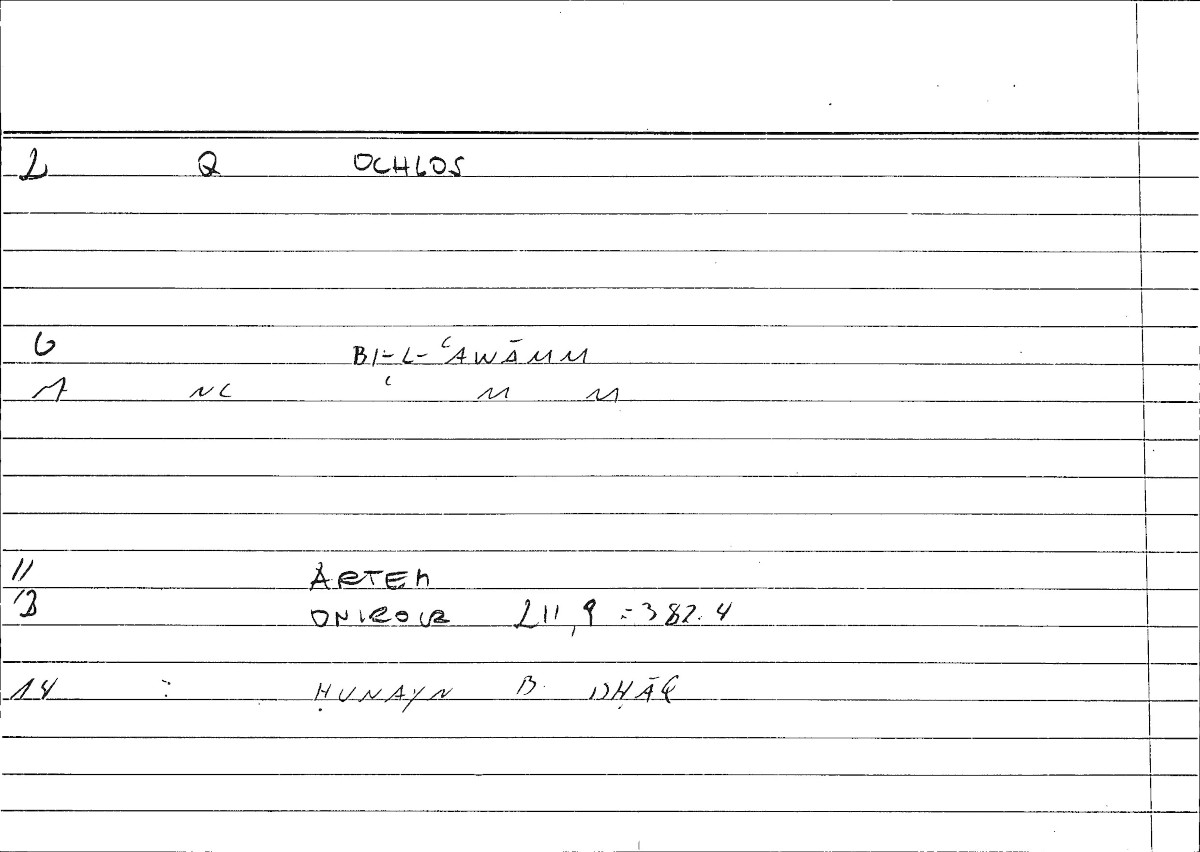 2 Q OCHLOS
6 BI-L-ʿAWĀMM
M NC ʿ M M
11 ARTEM
13 ONIROCR 211,9 = 382.4
14 : ḤUNAYN B. ISḤĀQ